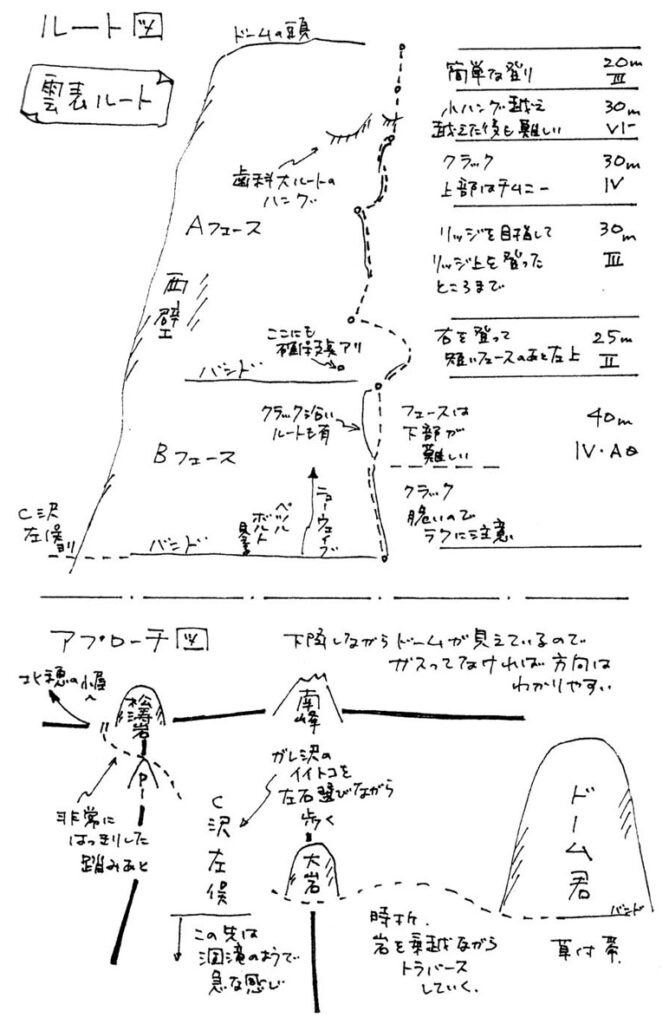 ルート図
雲表ルート
ドームの頭
簡単な登り 20m
III
小ハング越え 30m
越えた後も難しい VI-
クラック 30m
上部はチムニー IV
歯科大ルートの
ハング
Aフェース
リッジを目指して 30m
リッジ上を登った III
ところまで
西壁
ここにも
確保支点アリ
右を登って 25m
短いフェースのあと左上 II
バンド
クラック沿い
ルートも有
フェースは 40m
下部が IV・A0
難しい
Bフェース
クラック
脆いので
ラクに注意
ニューウェイブ
ペツル
ボルト
C沢
左俣
バンド
アプローチ図
下降しながらドームが見えているので
ガスってなければ方向は
わかりやすい
北穂の小屋
松濤岩
南峰
P
非常に
はっきりした
踏みあと
ガレ沢の
イイトコを
左右選びながら
歩く
C沢左俣
大岩
ドーム君
バンド
草付帯
この先は
涸滝のようで
急な感じ
時折、
岩を乗越ながら
トラバース
していく。